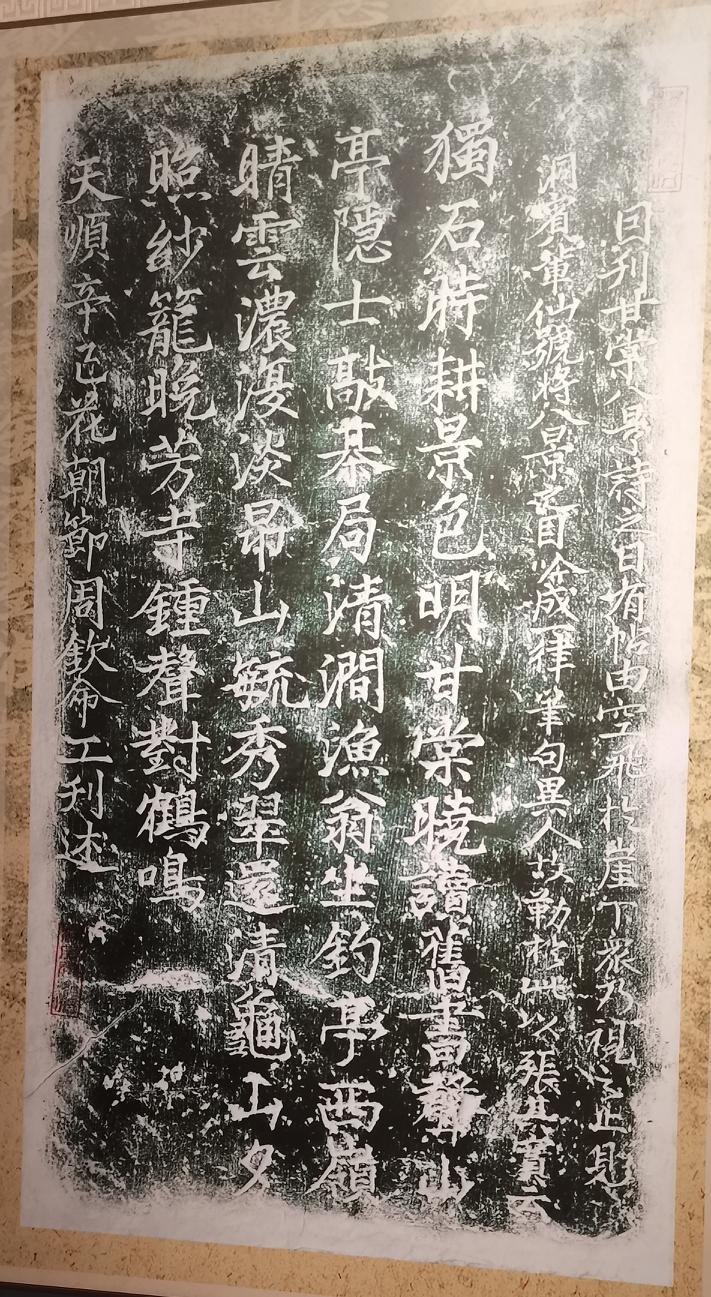 因刊甘棠八景詩之日有帖由空飛於崖下眾乃視之止見
洞賓輩仙號將八景童目冷成一律筆句異人故勒於此以張其實云
獨石時耕景色明甘棠曉讀舊書聲山
亭隱士敲棊局清澗漁翁坐釣亭西嶺
晴雲濃漫淡昂山毓秀翠還清龜山夕
照紗籠晚芳寺鍾聲對鶴鳴
天順辛巳花朝節周欽命工刊述